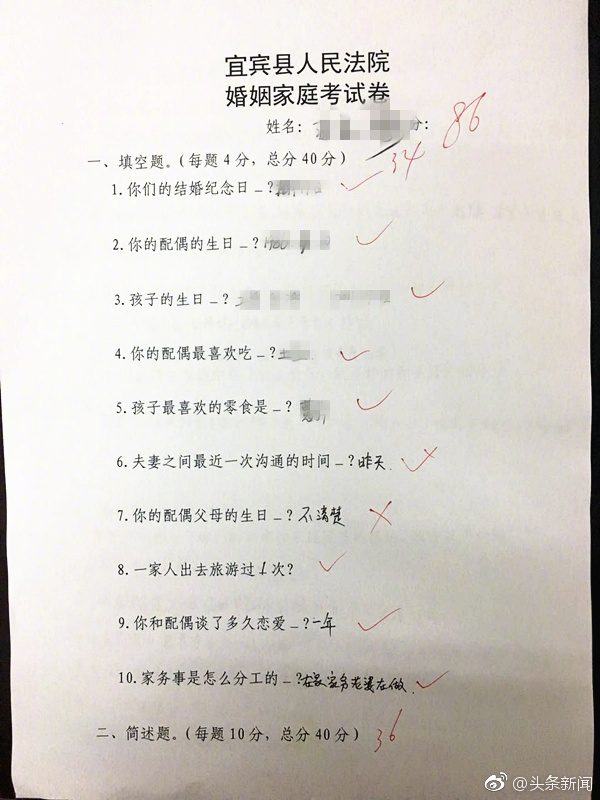 宜宾县人民法院
婚姻家庭考试卷
姓名: 分: 86
一、填空题。(每题4分,总分40分) 34
1.你们的结婚纪念日_?
2.你的配偶的生日_?
3.孩子的生日_?
4.你的配偶最喜欢吃_?
5.孩子最喜欢的零食是_?
6.夫妻之间最近一次沟通的时间_?昨天.
7.你的配偶父母的生日_?不清楚
8.一家人出去旅游过1次?
9.你和配偶谈了多久恋爱_?一年
10.家务事是怎么分工的_?在家家务老婆在做.
二、简述题。(每题10分,总分40分) 36
@头条新闻